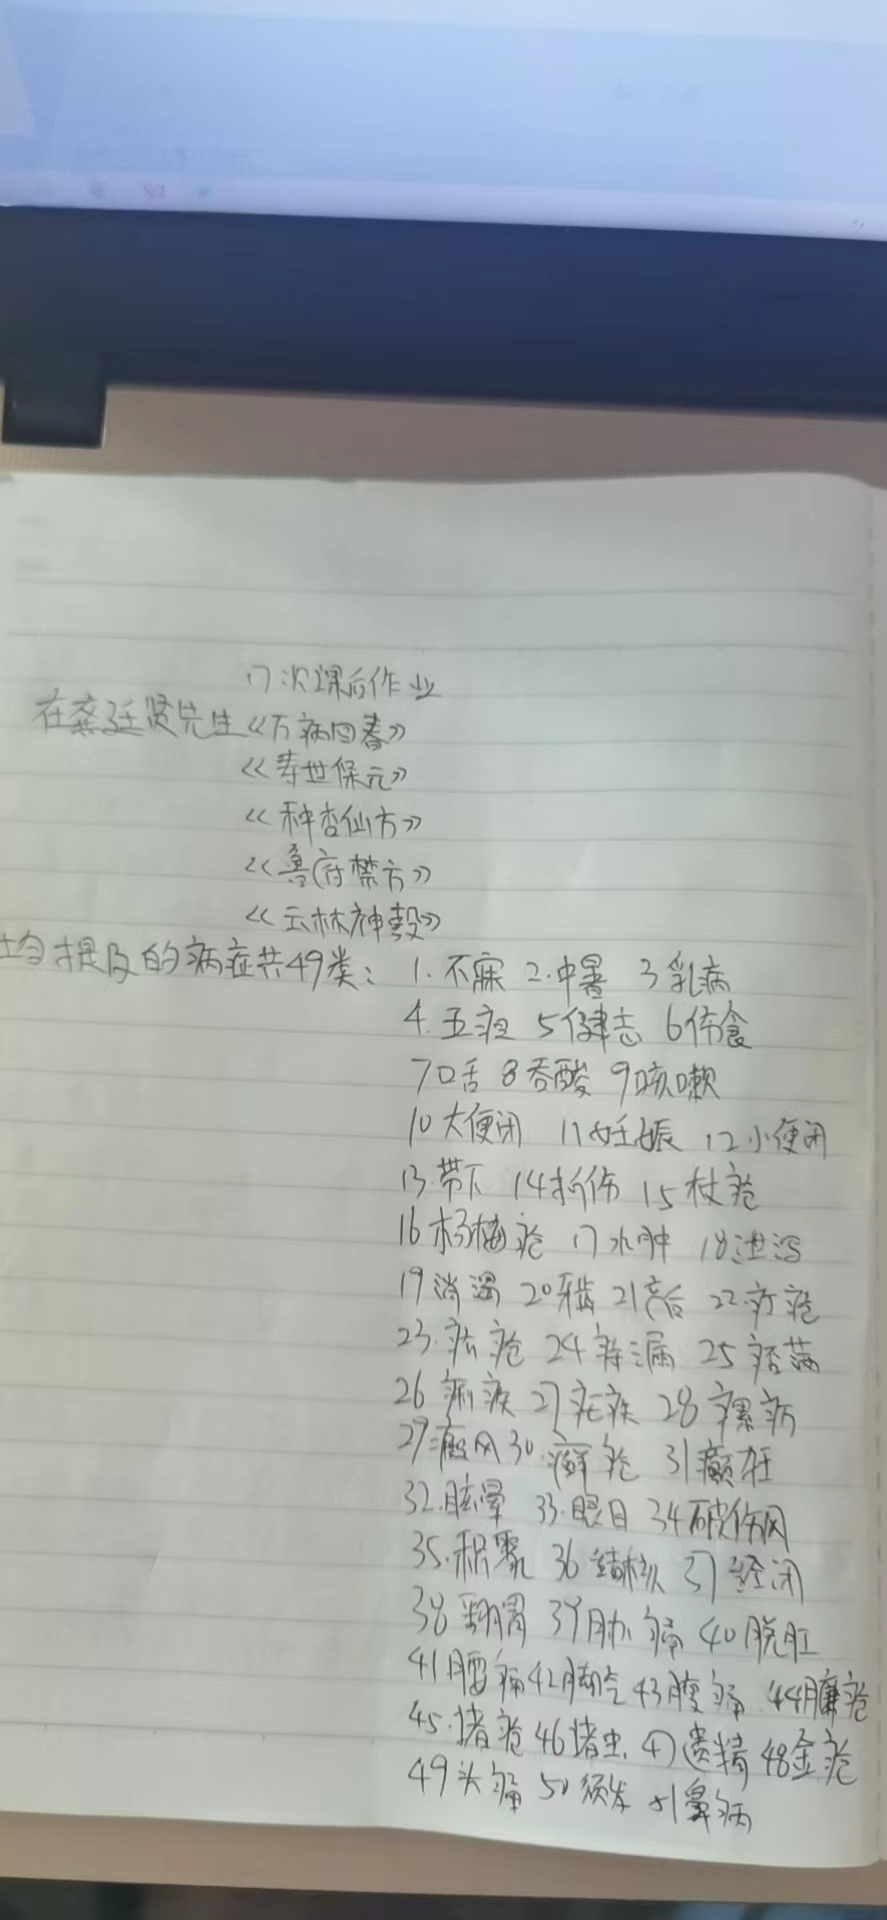 17次课后作业
在龚廷贤先生《万病回春》
《寿世保元》
《种杏仙方》
《鲁府禁方》
《云林神彀》
均提及的病症共49类： 1.不寐 2.中暑 3乳病
4.五疸 5健忘 6伤食
7口舌 8吞酸 9咳嗽
10大便闭 11妊娠 12小便闭
13.带下 14折伤 15杖疮
16杨梅疮 17水肿 18泄泻
19消渴 20牙齿 21产后 22.疔疮
23.疥疮 24痔漏 25痞满
26痢疾 27疟疾 28瘰疬
29癜风 30.癣疮 31癫狂
32.眩晕 33.眼目 34破伤风
35.积聚 36结核 37经闭
38翻胃 39胁痛 40脱肛
41腰痛 42脚气 43腹痛 44臁疮
45. 疮 46 虫 47遗精 48金疮
49头痛 50须发 51鼻病